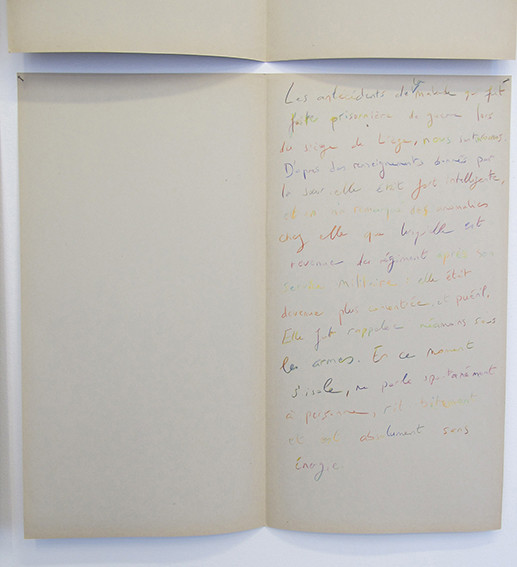 Les antécédents de la malade qui fut
faite prisonnière de guerre lors
du siège de Liège, nous intéresse.
D'après des renseignements donnés par
la sœur elle était fort intelligente,
et on ne remarqua des anomalies
chez elle que lorsqu'elle est
revenue du régiment après son
service militaire : elle était
devenue plus concentrée, et puéril,
Elle fut rappelée néanmoins sous
les armes. En ce moment
s'isole, ne parle spontanément
à personne, rit bêtement
et est absolument sans
énergie.